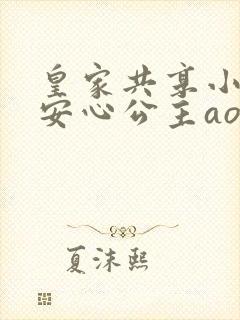 皇家共享小
安心公主ao
夏沫熙